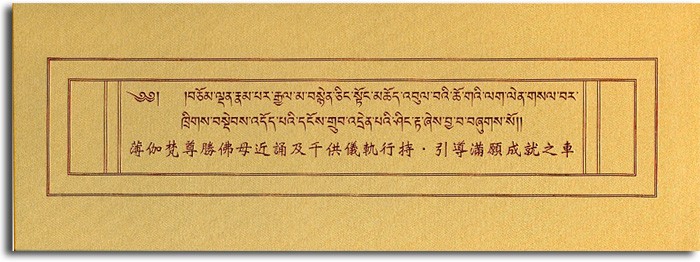 ༄༅། །བཅོམ་ལྡན་རྣམ་པར་རྒྱལ་མ་བསྙེན་ཅིང་སྟོང་མཆོད་འབུལ་བའི་ཆོ་གའི་ལག་ལེན་གསལ་བར་
ཁྲིགས་བསྡེབས་འདོད་པའི་དངོས་གྲུབ་འདྲེན་པའི་ཤིང་རྟ་ཞེས་བྱ་བ་བཞུགས་སོ།།
薄伽梵尊勝佛母近誦及千供儀軌行持．引導滿願成就之車